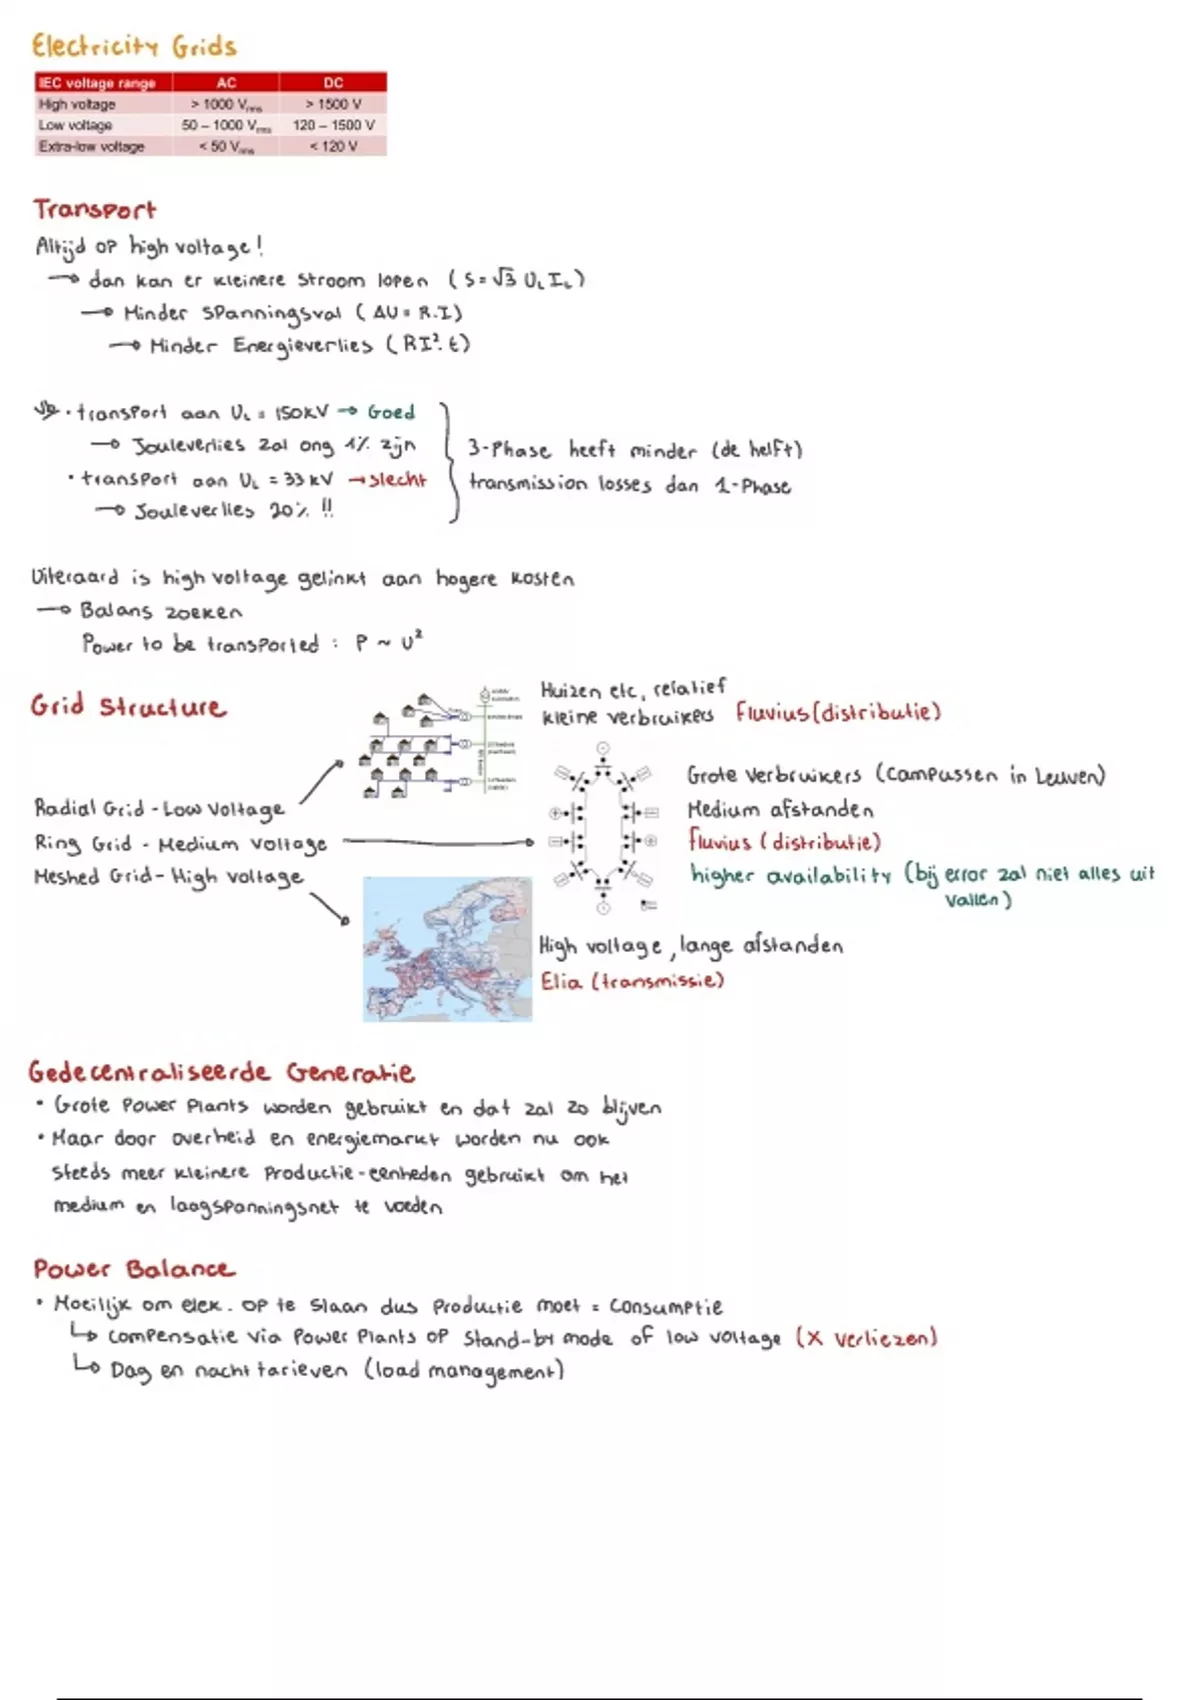 Electricity Grids
IEC voltage range AC DC
High voltage > 1000 Vrms > 1500 V
Low voltage 50 – 1000 Vrms 120 – 1500 V
Extra-low voltage < 50 Vrms < 120 V
Transport
Altijd op high voltage!
→ dan kan er kleinere stroom lopen (S = √3 U_L I_L)
→ Minder spanningsval (ΔU = R.I)
→ Minder Energieverlies (RI².t)
Vb • transport aan U_L = 150kV → Goed
→ Jouleverlies zal ong 1% zijn
• transport aan U_L = 33 kV → slecht
→ Jouleverlies 20% !!
3-Phase heeft minder (de helft)
transmission losses dan 1-Phase
Uiteraard is high voltage gelinkt aan hogere kosten
→ Balans zoeken
Power to be transported : P ~ U²
Grid Structure
Huizen etc, relatief
kleine verbruikers Fluvius (distributie)
Radial Grid - Low Voltage
Ring Grid - Medium Voltage
Meshed Grid - High voltage
Grote verbruikers (campussen in Leuven)
Medium afstanden
fluvius (distributie)
higher availability (bij error zal niet alles uit
vallen)
High voltage, lange afstanden
Elia (transmissie)
Gedecentraliseerde Generatie
• Grote Power Plants worden gebruikt en dat zal zo blijven
• Maar door overheid en energiemarkt worden nu ook
steeds meer kleinere productie-eenheden gebruikt om het
medium en laagspanningsnet te voeden
Power Balance
• Moeilijk om elek. op te slaan dus productie moet = consumptie
↳ compensatie via Power Plants op stand-by mode of low voltage (X verliezen)
↳ Dag en nacht tarieven (load management)